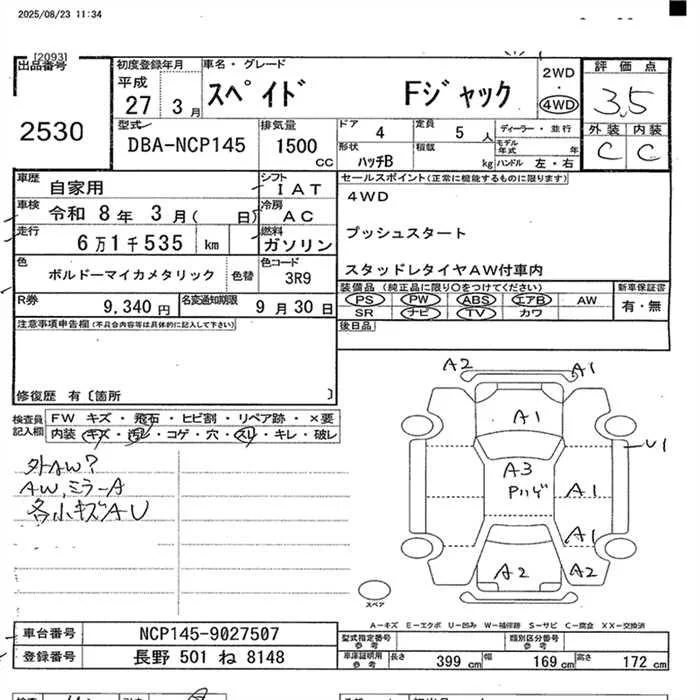 2025/08/23 11:34
[2093]
出品番号
2530
初度登録年月
平成
27 3月
車名・グレード
スペイド Fジャック
2WD
・
4WD
評価点
3.5
外装 内装
C C
型式
DBA-NCP145
排気量
1500 CC
ドア 4
定員 5 人
ディーラー・並行
形状 ハッチB
積載 kg
モデル年式 年
ハンドル 左・右
車歴 自家用
シフト IAT
車検 令和 8年 3月( 日)
冷房 AC
走行 6万1千535 km
燃料 ガソリン
色 ボルドーマイカメタリック 色替
色コード 3R9
R券 9,340円
名変通知期限 9月30日
セールスポイント(正常に機能するものに限ります)
4WD
プッシュスタート
スタッドレタイヤAW付車内
装備品(純正品に限り〇をつけてください)
新車保証書
PS PW ABS エアB AW
SR ナビ TV カワ
有・無
後日品
注意事項申告欄(不具合内容等は具体的に記入して下さい)
修復歴 有〔箇所 〕
検査員記入欄
FW キズ・飛石・ヒビ割・リペア跡・×要
内装・キズ・汚レ・コゲ・穴・スリ・キレ・破レ
外AW?
AW,ミラーA
各小キズAU
A2 A1
A1
U1
A3
Pハゲ
A1
A1
A2 A2
スペア
A-キズ E-エクボ U-凹み W-補修跡 S-サビ C-腐食 XX-交換済
車台番号 NCP145-9027507
登録番号 長野 501 ね 8148
型式指定番号 参考
類別区分番号 参考
車庫証明用 参考
長さ 399 cm 幅 169 cm 高さ 172 cm